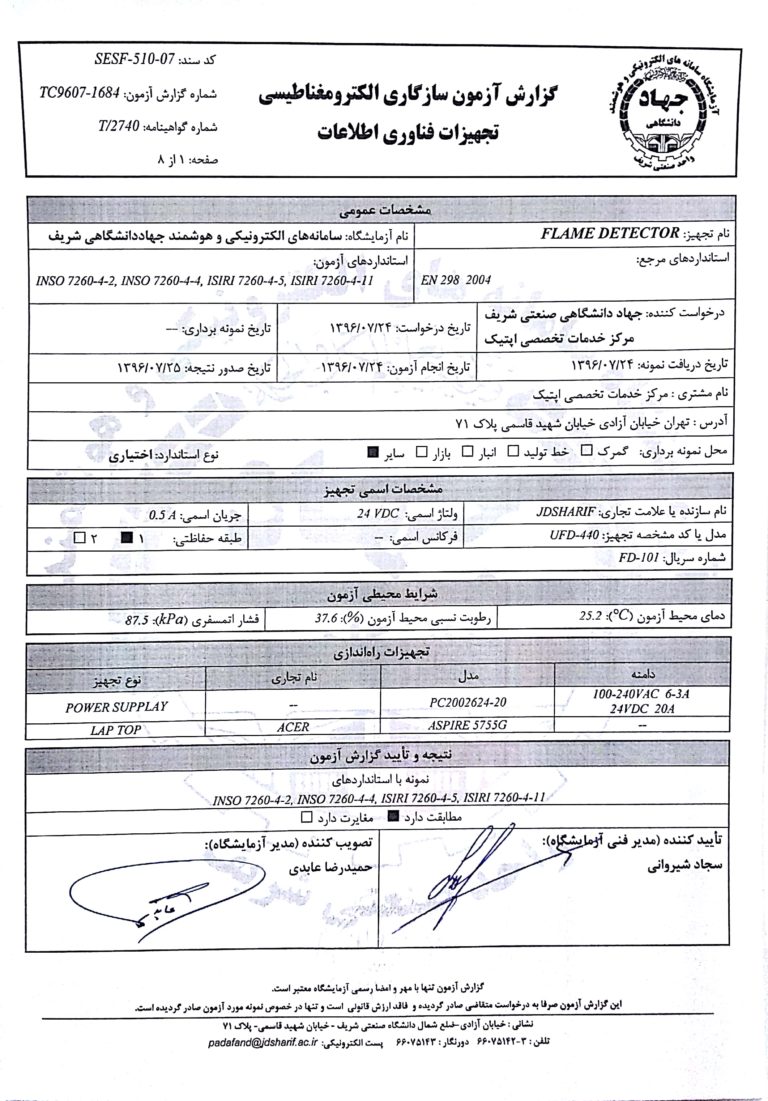 آزمایشگاه سامانه های الکترونیکی و هوشمند
جهاد
دانشگاهی
واحد صنعتی شریف
گزارش آزمون سازگاری الکترومغناطیسی
تجهیزات فناوری اطلاعات
کد سند: SESF-510-07
شماره گزارش آزمون: TC9607-1684
شماره گواهینامه: T/2740
صفحه: ۱ از ۸
مشخصات عمومی
نام تجهیز: FLAME DETECTOR
نام آزمایشگاه: سامانه‌های الکترونیکی و هوشمند جهاددانشگاهی شریف
استانداردهای مرجع:
EN 298 2004
استانداردهای آزمون:
INSO 7260-4-2, INSO 7260-4-4, ISIRI 7260-4-5, ISIRI 7260-4-11
درخواست کننده: جهاد دانشگاهی صنعتی شریف
مرکز خدمات تخصصی اپتیک
تاریخ درخواست: ۱۳۹۶/۰۷/۲۴
تاریخ نمونه برداری: ---
تاریخ دریافت نمونه: ۱۳۹۶/۰۷/۲۴
تاریخ انجام آزمون: ۱۳۹۶/۰۷/۲۴
تاریخ صدور نتیجه: ۱۳۹۶/۰۷/۲۵
نام مشتری : مرکز خدمات تخصصی اپتیک
آدرس : تهران خیابان آزادی خیابان شهید قاسمی پلاک ۷۱
محل نمونه برداری: گمرک ☐ خط تولید ☐ انبار ☐ بازار ☐ سایر ■
نوع استاندارد: اختیاری
مشخصات اسمی تجهیز
نام سازنده یا علامت تجاری: JDSHARIF
ولتاژ اسمی: 24 VDC
جریان اسمی: 0.5 A
مدل یا کد مشخصه تجهیز: UFD-440
فرکانس اسمی: --
طبقه حفاظتی: ۱ ■ ۲ ☐
شماره سریال: FD-101
شرایط محیطی آزمون
دمای محیط آزمون (°C): 25.2
رطوبت نسبی محیط آزمون (%): 37.6
فشار اتمسفری (kPa): 87.5
تجهیزات راه‌اندازی
دامنه
مدل
نام تجاری
نوع تجهیز
100-240VAC 6-3A
24VDC 20A
PC2002624-20
--
POWER SUPPLAY
--
ASPIRE 5755G
ACER
LAP TOP
نتیجه و تأیید گزارش آزمون
نمونه با استانداردهای
INSO 7260-4-2, INSO 7260-4-4, ISIRI 7260-4-5, ISIRI 7260-4-11
مطابقت دارد ■ مغایرت دارد ☐
تأیید کننده (مدیر فنی آزمایشگاه):
سجاد شیروانی
تصویب کننده (مدیر آزمایشگاه):
حمیدرضا عابدی
گزارش آزمون تنها با مهر و امضا رسمی آزمایشگاه معتبر است.
این گزارش آزمون صرفا به درخواست متقاضی صادر گردیده و فاقد ارزش قانونی است و تنها در خصوص نمونه مورد آزمون صادر گردیده است.
نشانی : خیابان آزادی -ضلع شمال دانشگاه صنعتی شریف - خیابان شهید قاسمی- پلاک ۷۱
تلفن : ۳-۶۶۰۷۵۱۴۲ دورنگار : ۶۶۰۷۵۱۴۳ پست الکترونیکی: padafand@jdsharif.ac.ir